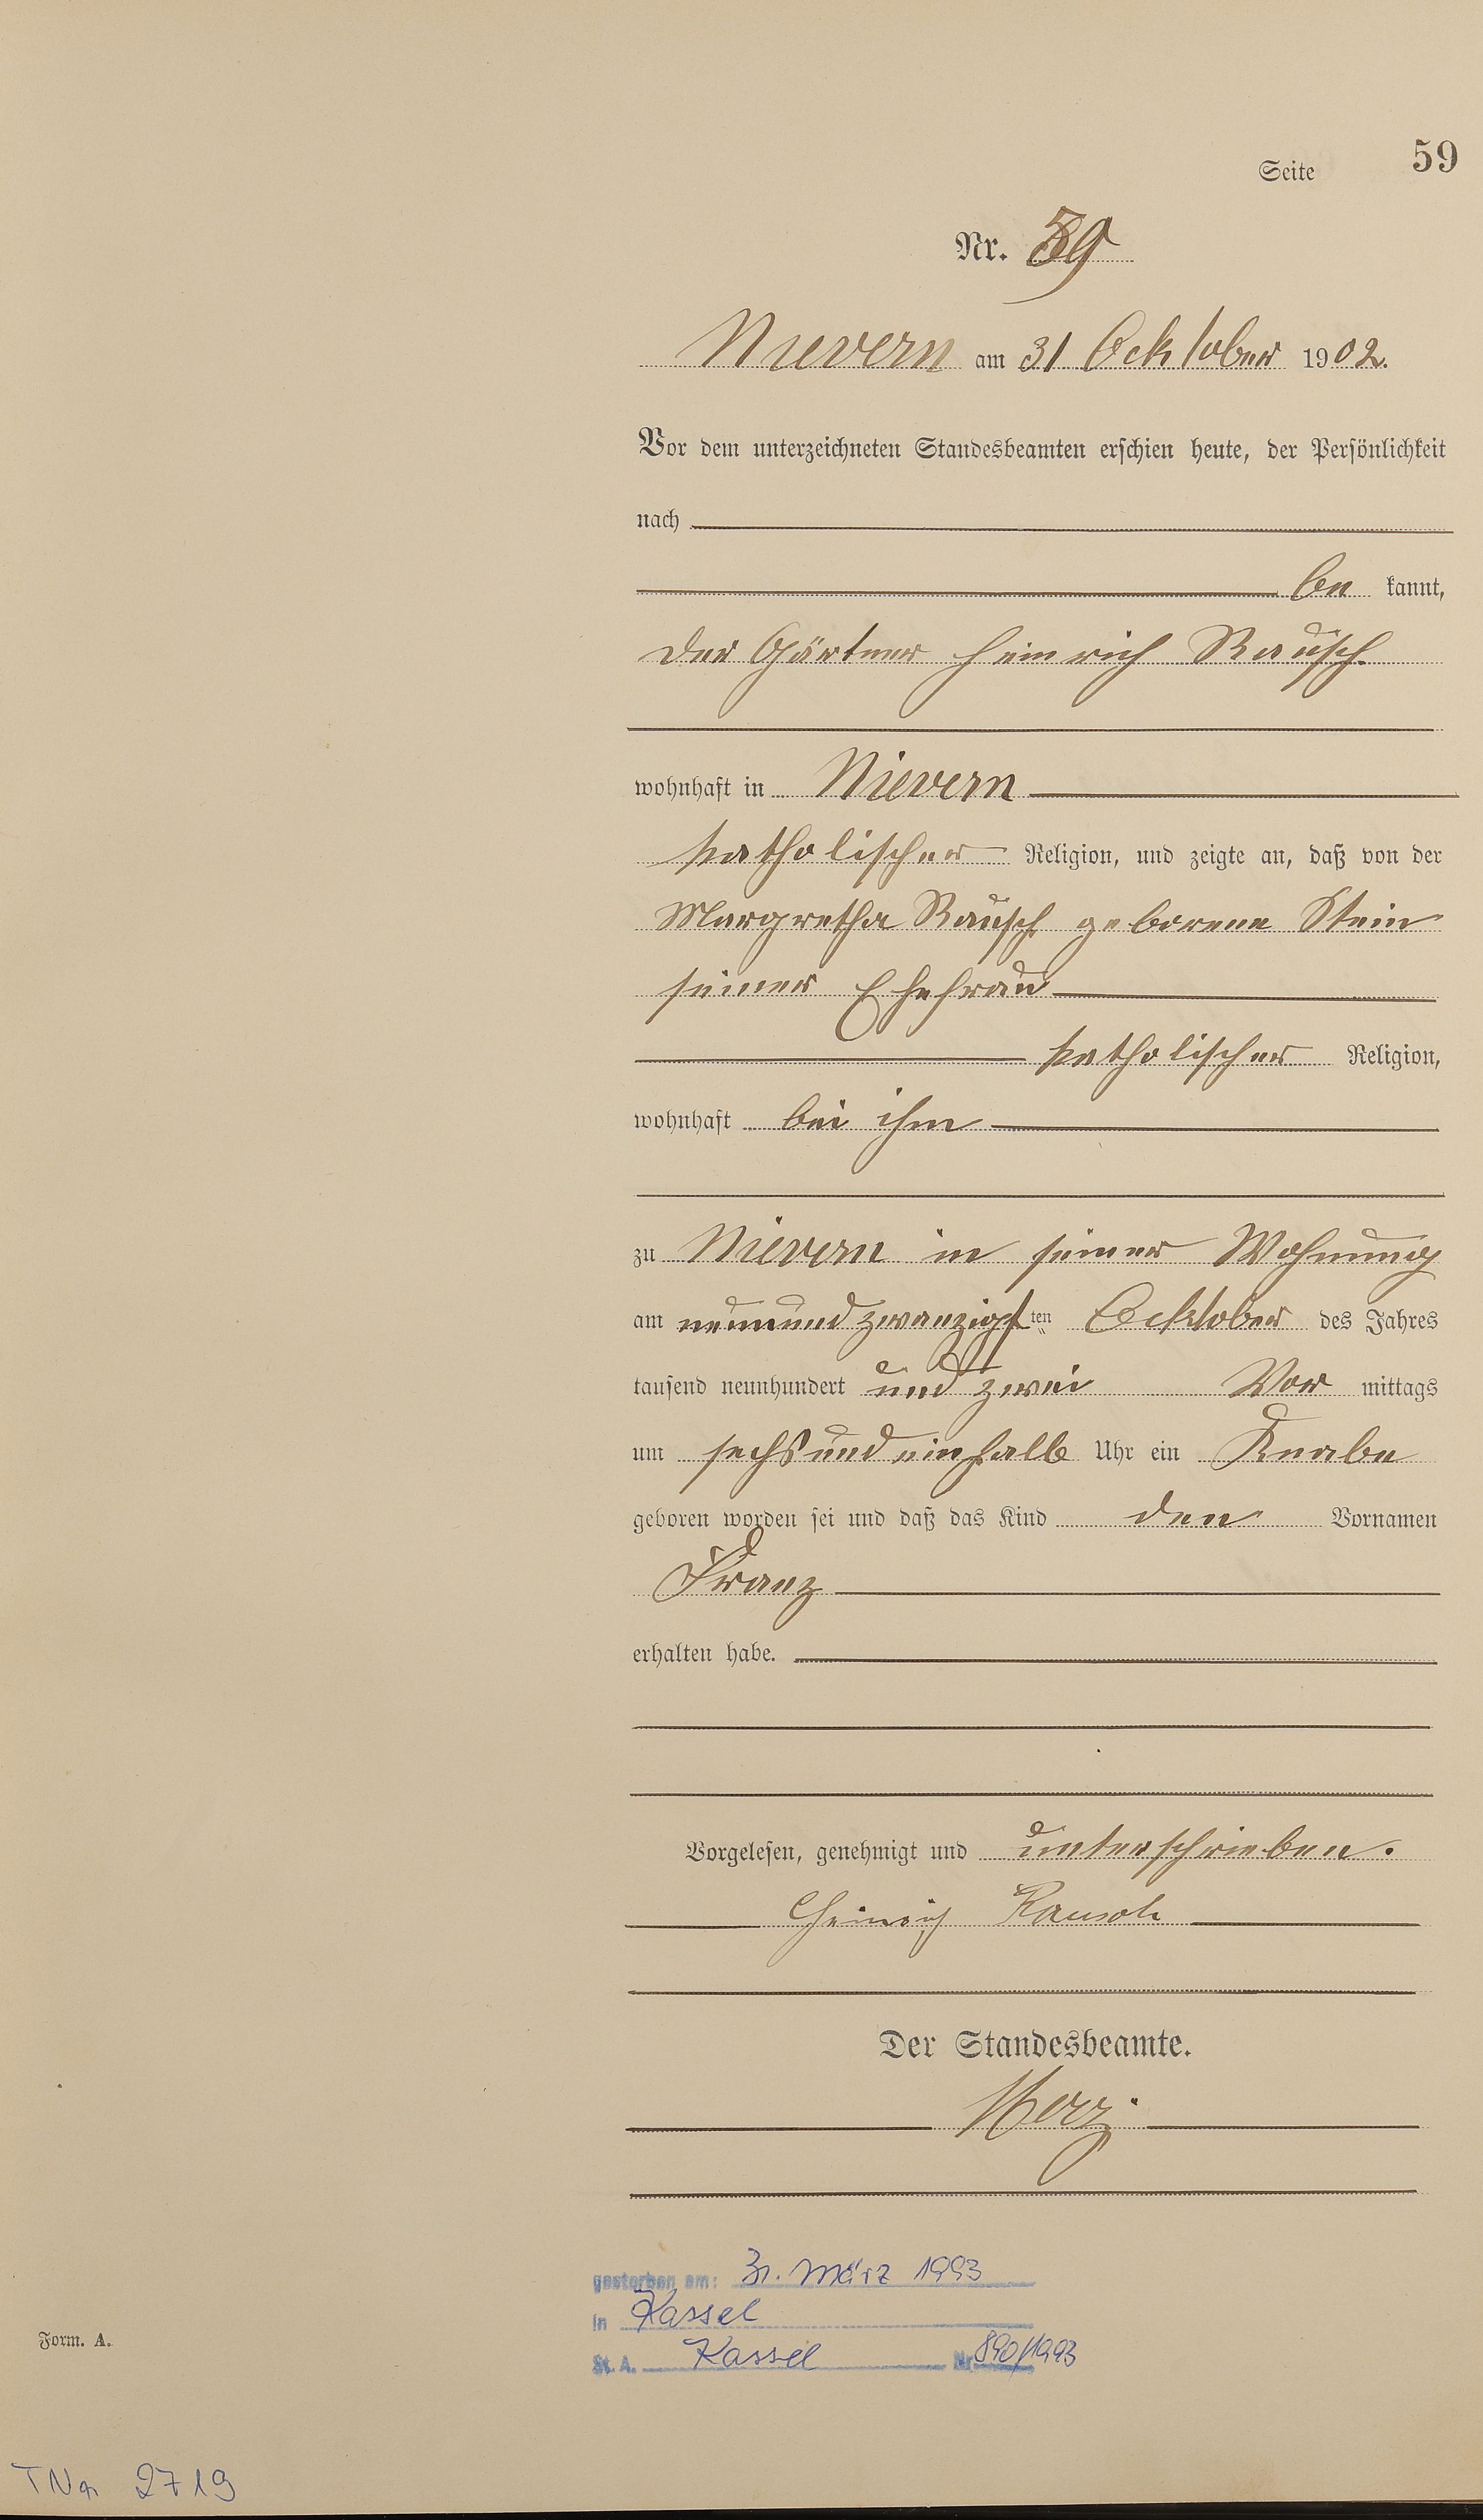 Seite 59
Nr. 59
Nievern am 31 Ocktober 1902.
Vor dem unterzeichneten Standesbeamten erschien heute, der Persönlichkeit
nach
be kannt,
der Gärtner Heinrich Rausch
wohnhaft in Nievern
katholischer Religion, und zeigte an, daß von der
Margretha Rausch geborene Stein
seiner Ehefrau
katholischer Religion,
wohnhaft bei ihm
zu Nievern in seiner Wohnung
am neunundzwanzigsten Ocktober des Jahres
tausend neunhundert und zwei Vor mittags
um sechs und ein halb Uhr ein Knabe
geboren worden sei und daß das Kind den Vornamen
Franz
erhalten habe.
Vorgelesen, genehmigt und unterschrieben.
Heinrich Rausch
Der Standesbeamte.
gestorben am: 31. März 1993
in Kassel
St. A. Kassel Nr. 890/1993
Form. A.
TNr 2719